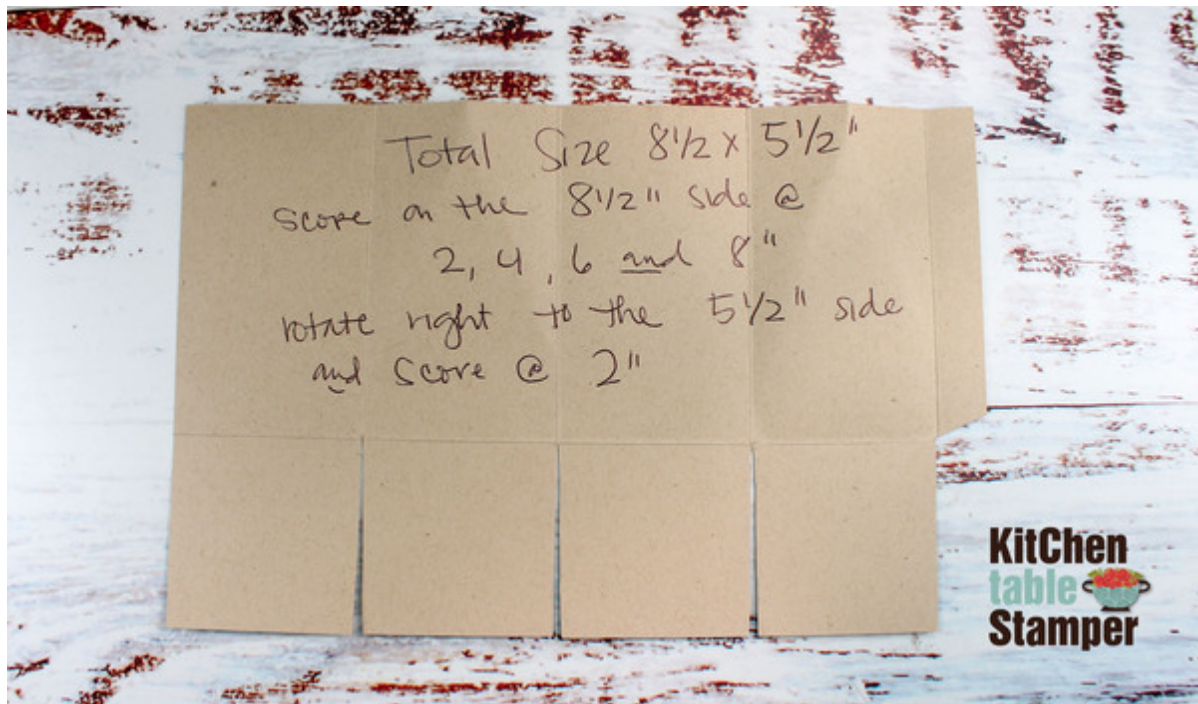 Total Size 8 1/2 x 5 1/2"
score on the 8 1/2" side @
2, 4, 6 and 8"
rotate right to the 5 1/2" side
and score @ 2"
KitChen
table
Stamper